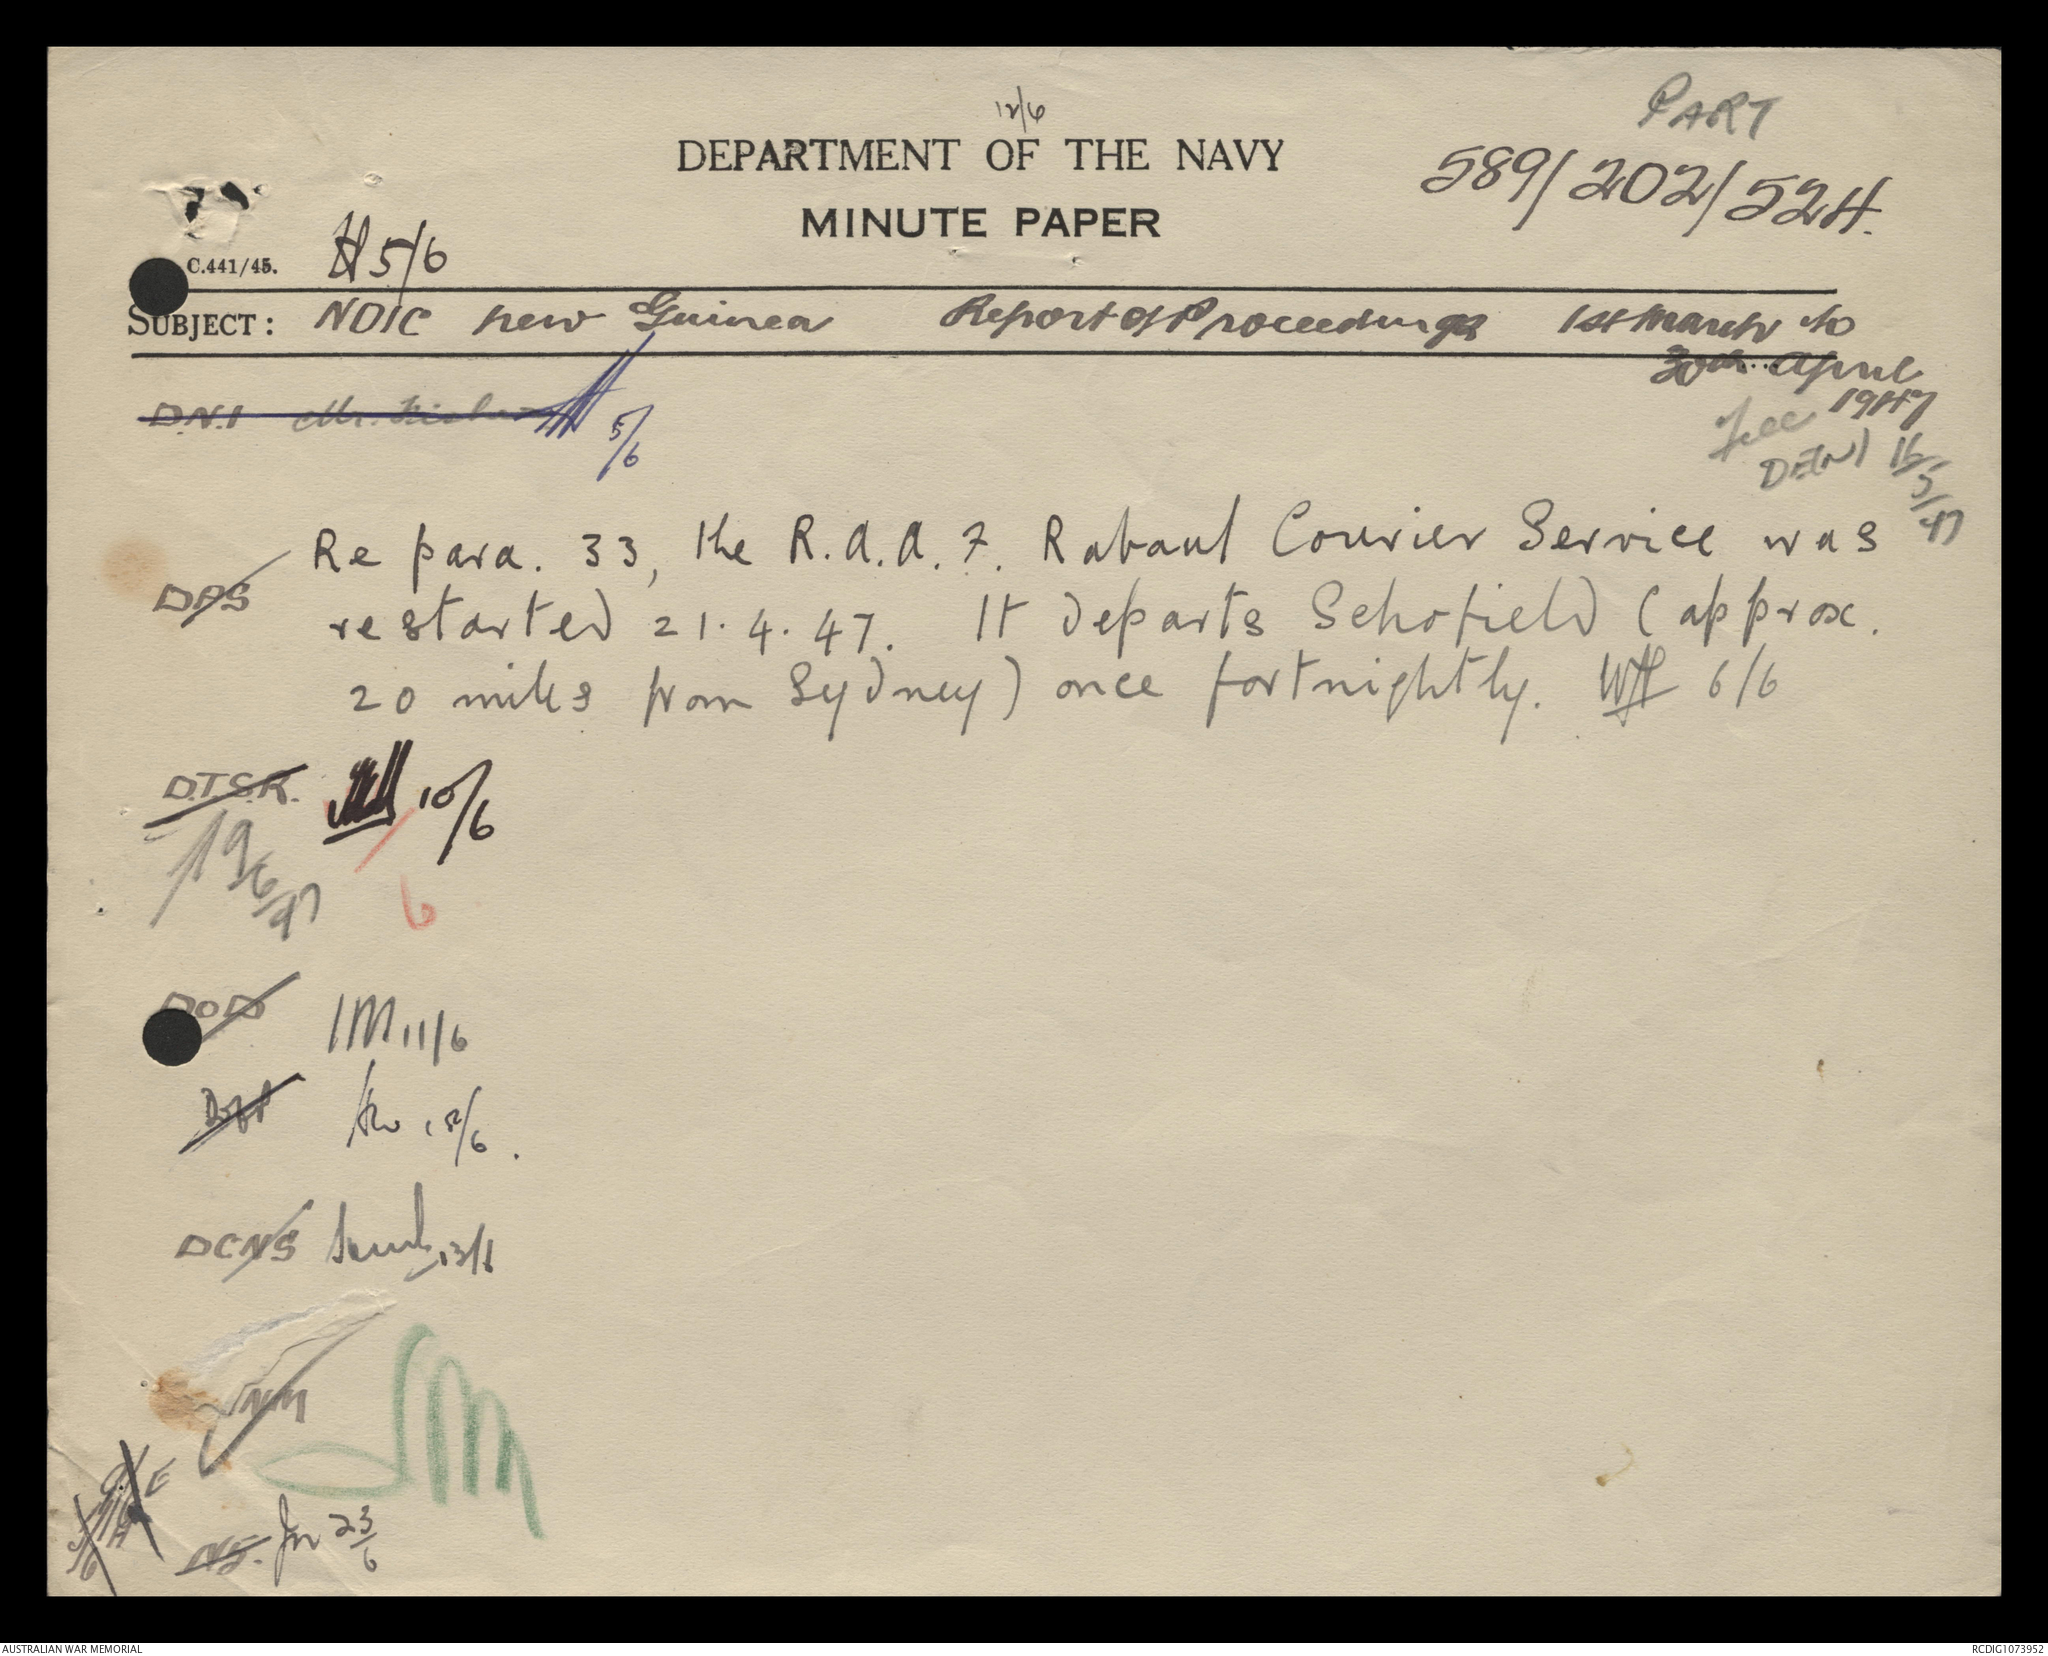 12/6
PART
DEPARTMENT OF THE NAVY
589/202/524.
MINUTE PAPER
C.441/45. H 5/6
SUBJECT: NOIC New Guinea Report of Proceedings 1st March to
30th April
1947
D.N.I Mr. 5/6
DEN1 16/5/47
Re para. 33, the R.A.A.F. Rabaul Courier Service was
DAS
restarted 21.4.47. It departs Schofield (approx.
20 miles from Sydney) once fortnightly. WH 6/6
D.T.S.R. 10/6
19/6/47
6
DOD 11/6
12/6.
DCNS 13/6
NM
23/6
AUSTRALIAN WAR MEMORIAL
RCDIG1073952